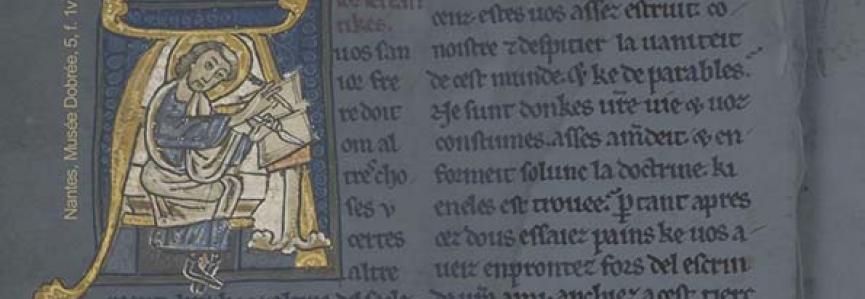 Nantes, Musée Dobrée, 5, f. 1v
tikes.
uos san
ioz fre
re doit
om al
tres cho
ses v
certes
altre
cenz estes uos assez estruit co
noistre ⁊ despitier la uaniteit
de cest munde. & ke de parables.
⁊ Je sunt donkes ure uie & uoz
constumes. asses amdeit & en
formeit solunc la doctrine. ki
en eles est trouee. p tant apres
cez dous essaiez pains ke uos a
ueiz enprontez fors del escrin